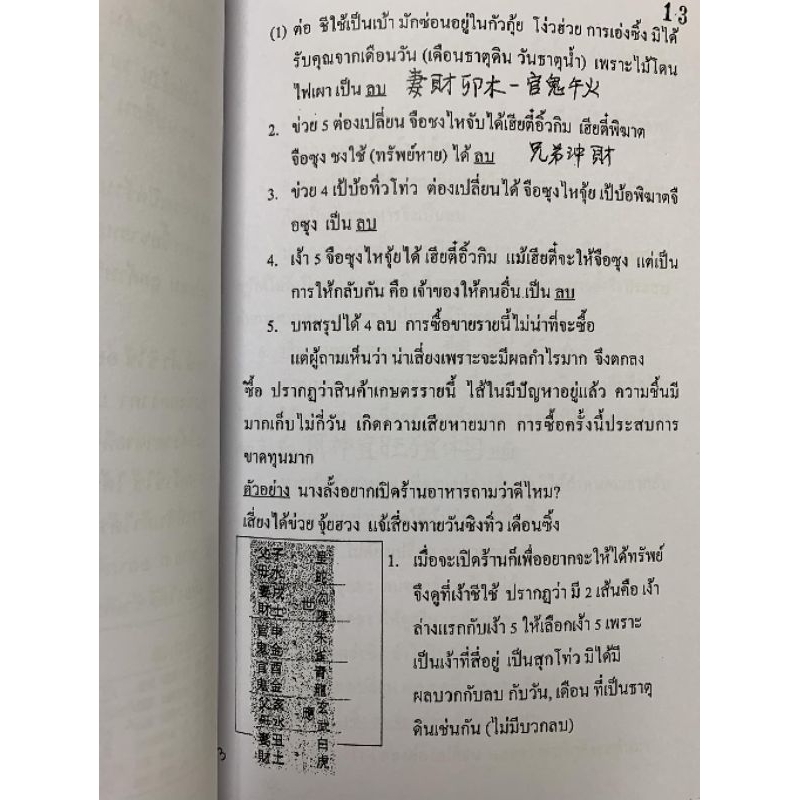 1.3
(1) ต่อ ชีใช้เป็นเบ้า มักซ่อนอยู่ในกัวกุ้ย โง่วฮ่วย การเอ่งซิ้ง มิได้
รับคุณจากเดือนวัน (เดือนธาตุดิน วันธาตุน้ำ) เพราะไม้โดน
ไฟเผา เป็น ลบ 妻財卯木 - 官鬼午火
2. ข่วย 5 ต่องเปลี่ยน จือชงไหจับได้เฮียตี๋อิ้วกิม เฮียตี๋พิฆาต
จือซุง ชงใช้ (ทรัพย์หาย) ได้ ลบ 兄弟沖財
3. ข่วย 4 เป้บ้อทิ่วโท่ว ต่องเปลี่ยนได้ จือซุงไหจุ้ย เป้บ้อพิฆาตจื
อซุง เป็น ลบ
4. เง้า 5 จือซุงไหจุ้ยได้ เฮียตี๋อิ้วกิม แม้เฮียตี๋จะให้จือซุง แต่เป็น
การให้กลับกัน คือ เจ้าของให้คนอื่น เป็น ลบ
5. บทสรุปได้ 4 ลบ การซื้อขายรายนี้ไม่น่าที่จะซื้อ
แต่ผู้ถามเห็นว่า น่าเสี่ยงเพราะจะมีผลกำไรมาก จึงตกลง
ซื้อ ปรากฏว่าสินค้าเกษตรรายนี้ ไส้ในมีปัญหาอยู่แล้ว ความชื้นมี
มากเก็บไม่กี่วัน เกิดความเสียหายมาก การซื้อครั้งนี้ประสบการ
ขาดทุนมาก
ตัวอย่าง นางลั้งอยากเปิดร้านอาหารถามว่าดีไหม?
เสี่ยงได้ข่วย จุ้ยฮวง แจ้เสี่ยงทายวันซิงทิ่ว เดือนซิ้ง
父母 子水
妻財 戌土 世 勾陳
官鬼 申金 朱雀
官鬼 酉金 青龍
父母 亥水 應 玄武
妻財 丑土 白虎
1. เมื่อจะเปิดร้านก็เพื่ออยากจะให้ได้ทรัพย์
จึงดูที่เง้าชีใช้ ปรากฏว่า มี 2 เส้นคือ เง้า
ล่างแรกกับเง้า 5 ให้เลือกเง้า 5 เพราะ
เป็นเง้าที่สี่อยู่ เป็นสุกโท่ว มิได้มี
ผลบวกกับลบ กับวัน, เดือน ที่เป็นธาตุ
ดินเช่นกัน (ไม่มีบวกลบ)
3